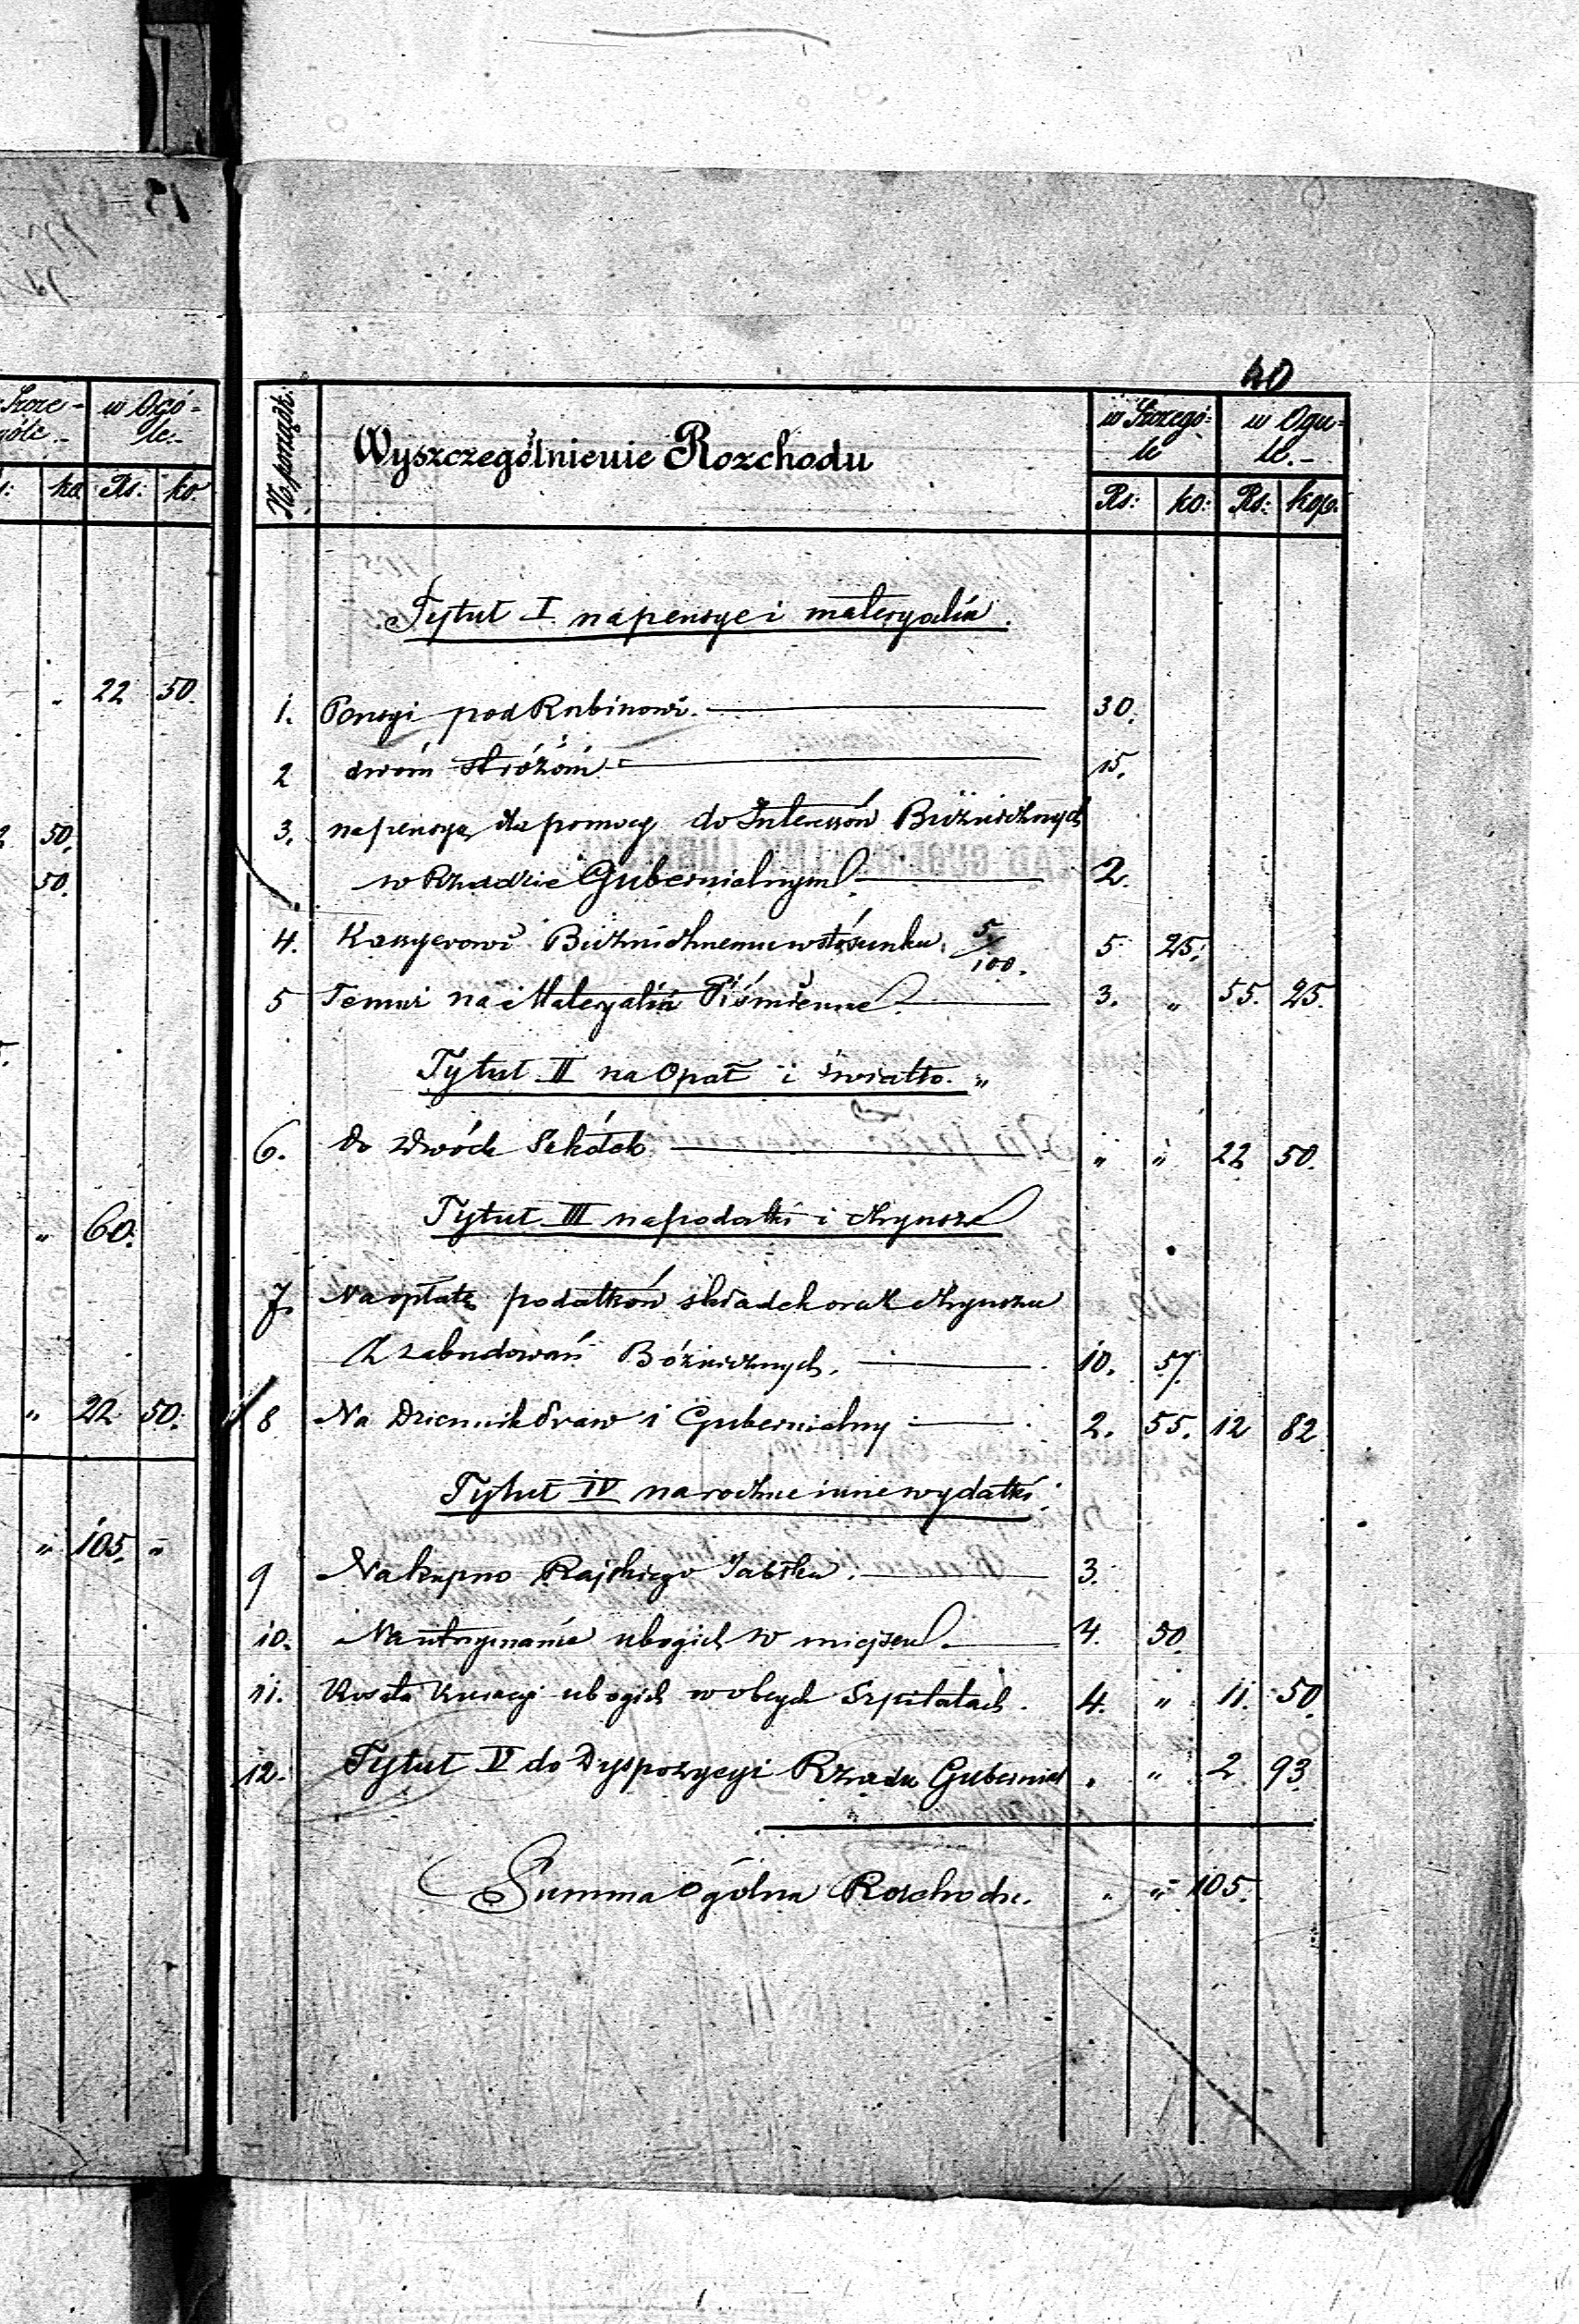 w Szcze- w Ogó-
góle.- le.-
s: ko. Rs: ko.
" 22 50.
2 50.
50.
" 60.
" 22 50.
" 105. "
40
No porządk. Wyszczególnienie Rozchodu w Szczegó- w Ogu-
le le.-
Rs: ko: Rs: kop.
Tytuł I na pensye i materyalia.
1. Pensyi pod Rabinowi. 30.
2 dwóm stróżóm 15.
3. na pensyą dla pomocy do Interessów Bużnicznych
w Rządzie Gubernialnym. 2.
4. Kassyerowi Bużnicznemu w stósunku 5/100. 5 25.
5 Temuż na Materyalia Piśmienne. 3. " 55. 25.
Tytuł II na Opał i światło. "
6. do dwóch Szkółek " " 22 50.
Tytuł III na podatki i czynsze
7. Na opłatę podatków składek oraz czynszu
Z zabudowań Bóżnicznych. 10. 57.
8 Na Dziennik Praw i Gubernialny 2. 55. 12 82
Tytuł IV na roczne inne wydatki
9 Na kupno Rajskiego Jabłka. 3.
10. Na utrzymanie ubogich w miejscu. 4. 50
11. Koszta Kuracyi ubogich w obcych Szpitalach. 4. " 11. 50.
12. Tytuł V do Dyspozycyi Rządu Gubernial " " 2. 93.
Summa Ogólna Rozchodu. " " 105.